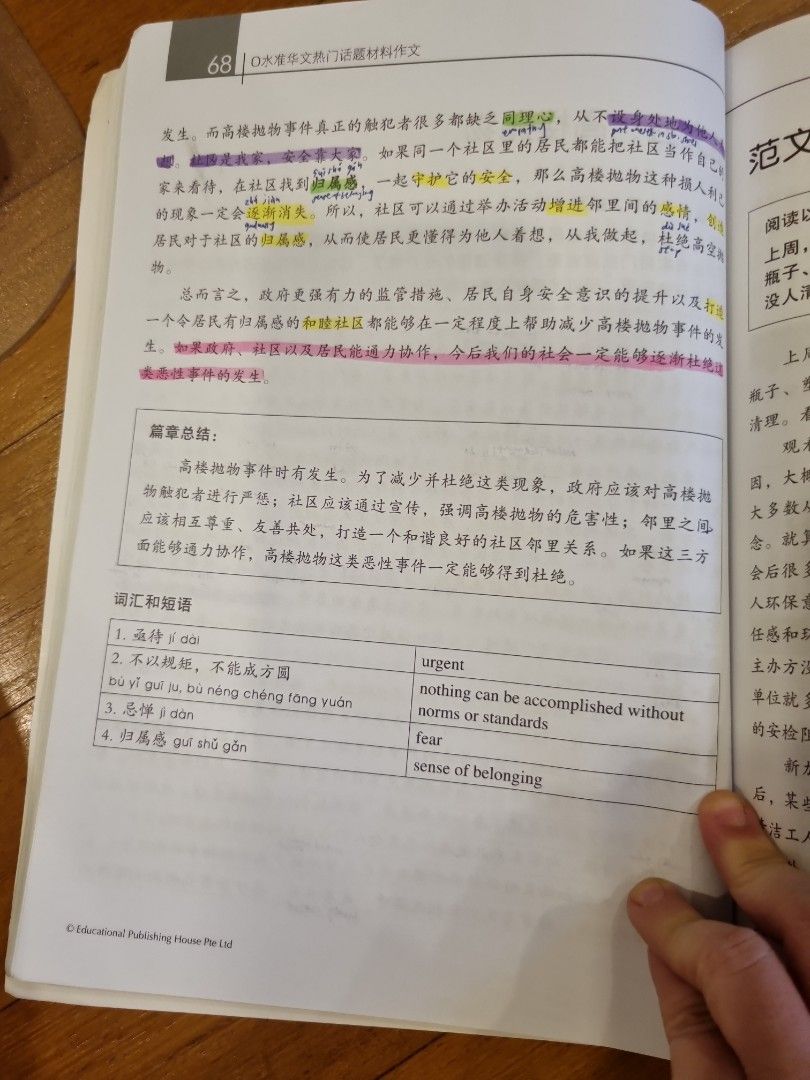 68 O水准华文热门话题材料作文
发生。而高楼抛物事件真正的触犯者很多都缺乏同理心，从不设身处地为他人
empathy put oneself in sb. shoes
想。社区是我家，安全靠大家。如果同一个社区里的居民都能把社区当作自己的
guī shǔ gǎn
家来看待，在社区找到归属感，一起守护它的安全，那么高楼抛物这种损人利己
zhú jiàn sense of belonging
的现象一定会逐渐消失。所以，社区可以通过举办活动增进邻里间的感情，创造
gradually dù jué
居民对于社区的归属感，从而使居民更懂得为他人着想，从我做起，杜绝高空抛
stop
物。
总而言之，政府更强有力的监管措施、居民自身安全意识的提升以及打造
一个令居民有归属感的和睦社区都能够在一定程度上帮助减少高楼抛物事件的发
生。如果政府、社区以及居民能通力协作，今后我们的社会一定能够逐渐杜绝这
类恶性事件的发生。
篇章总结：
高楼抛物事件时有发生。为了减少并杜绝这类现象，政府应该对高楼抛
物触犯者进行严惩；社区应该通过宣传，强调高楼抛物的危害性；邻里之间
应该相互尊重、友善共处，打造一个和谐良好的社区邻里关系。如果这三方
面能够通力协作，高楼抛物这类恶性事件一定能够得到杜绝。
词汇和短语
1. 亟待 jí dài urgent
2. 不以规矩，不能成方圆 nothing can be accomplished without
bù yǐ guī ju, bù néng chéng fāng yuán norms or standards
3. 忌惮 jì dàn fear
4. 归属感 guī shǔ gǎn sense of belonging
© Educational Publishing House Pte Ltd
范文
阅读以
上周，
瓶子、
没人清
上周
瓶子、塑
清理。看
观
因，大概
大多数人
念。就算
会后很多
人环保意
任感和环
主办方没
单位就多
的安检阻
新加
后，某些
清洁工人